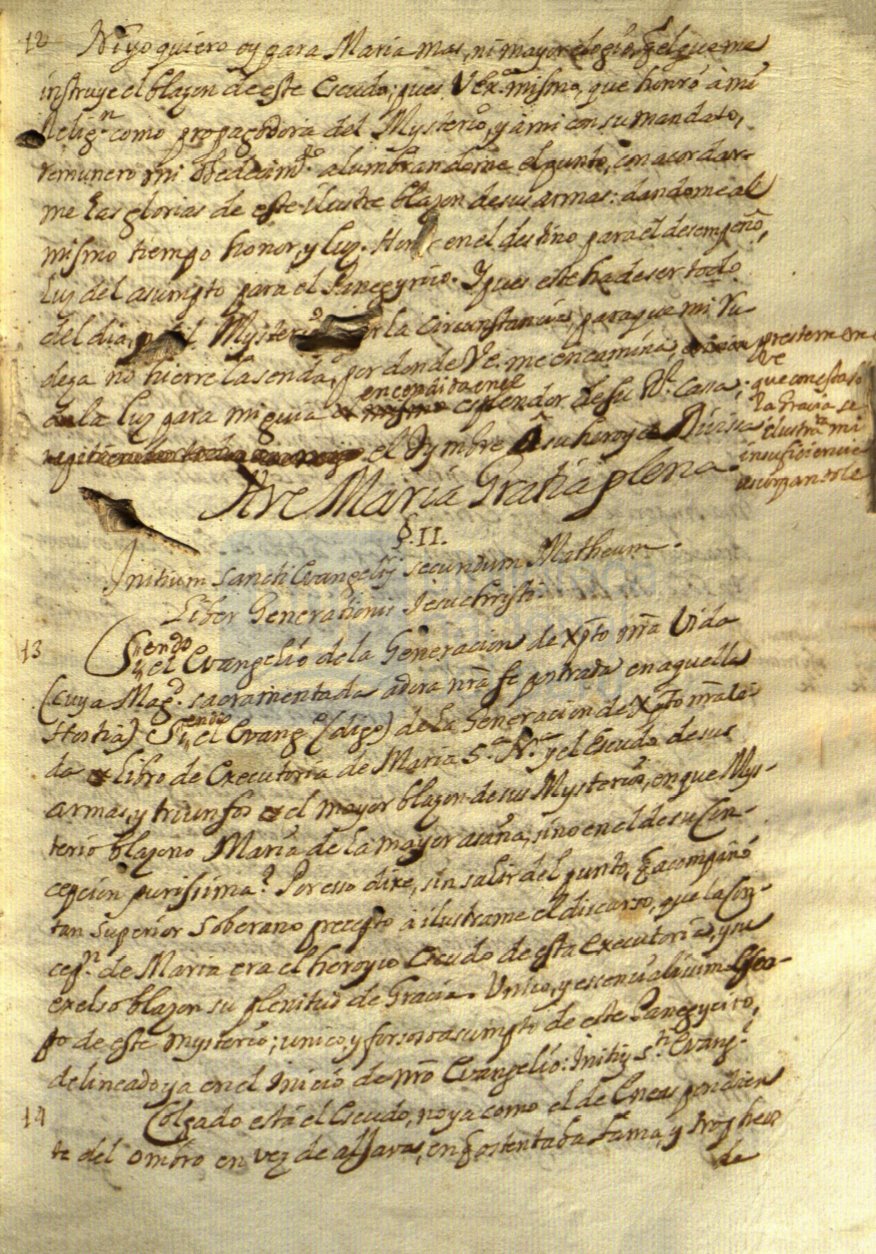 12 Ni yo quiero oy para Maria mas, ni mayor elogio, q̃ el que me
instruye el blazon de este Escudo; pues V. Ex.ª mismo, que honró à mi
Relig.n como propagadora del Mysterio, y à mi con su mandato,
remunero mi obedecim.to alumbrandome el punto, con acordar-
me las glorias de este ilustre blazon de sus armas: dandome al
mismo tiempo honor, y luz. Hon en el destino para el desempeño,
luz del asumpto para el Panegyrico. Y pues este ha de ser todo
del dia, Mysterio la circunstancia, para que mi ru
deza no hierre la senda, por donde V.e. me encamina,
la luz para mi guia escondida en el esplendor de su Casa
el Tymbre su heroyca Divisa
presteme
que con esta
la Gracia se
ilustra mi
insuficiencia
Ave Maria Gratia plena.
§. II.
Initium Sancti Evangelij secundum Matheum.
Liber Generationis Jesuchristi
13 Siendo el Evangelio de la Generacion de Xpto ñra Vida
(cuya Mag.d sacramentada adora ñra fe postrada en aquella
Hostia) Siendo el Evang.o (digo) de la Generacion de Xpto ñra Vi-
da libro de Executoria de Maria S.ª N.ª y el Escudo de sus
armas, y triunfos el mayor blazon de sus Mysterios, en que Mys-
terio blazono Maria de la mayor asaña, sino en el de su Con-
cepcion purissima? Por esso dixe, sin salir del punto, q̃ acompañó
tan Superior Soberano precepto à ilustrarme el discurso, que la Con-
cep.n de Maria era el heroyco Escudo de esta executoria, y su
exelso blazon su plenitud de Gracia. Unico, y essencialissimo
de este mysterio; unico, y forsoso asumpto de este Panegyrico,
delineado ya en el Inicio de ñro Evangelio: Initiũ S.ti Evang.
14 Colgado està el Escudo, no ya como el de Eneas pendien
te del ombro en vez de aljava, en q̃ ostentaba fama, y tropheos
de